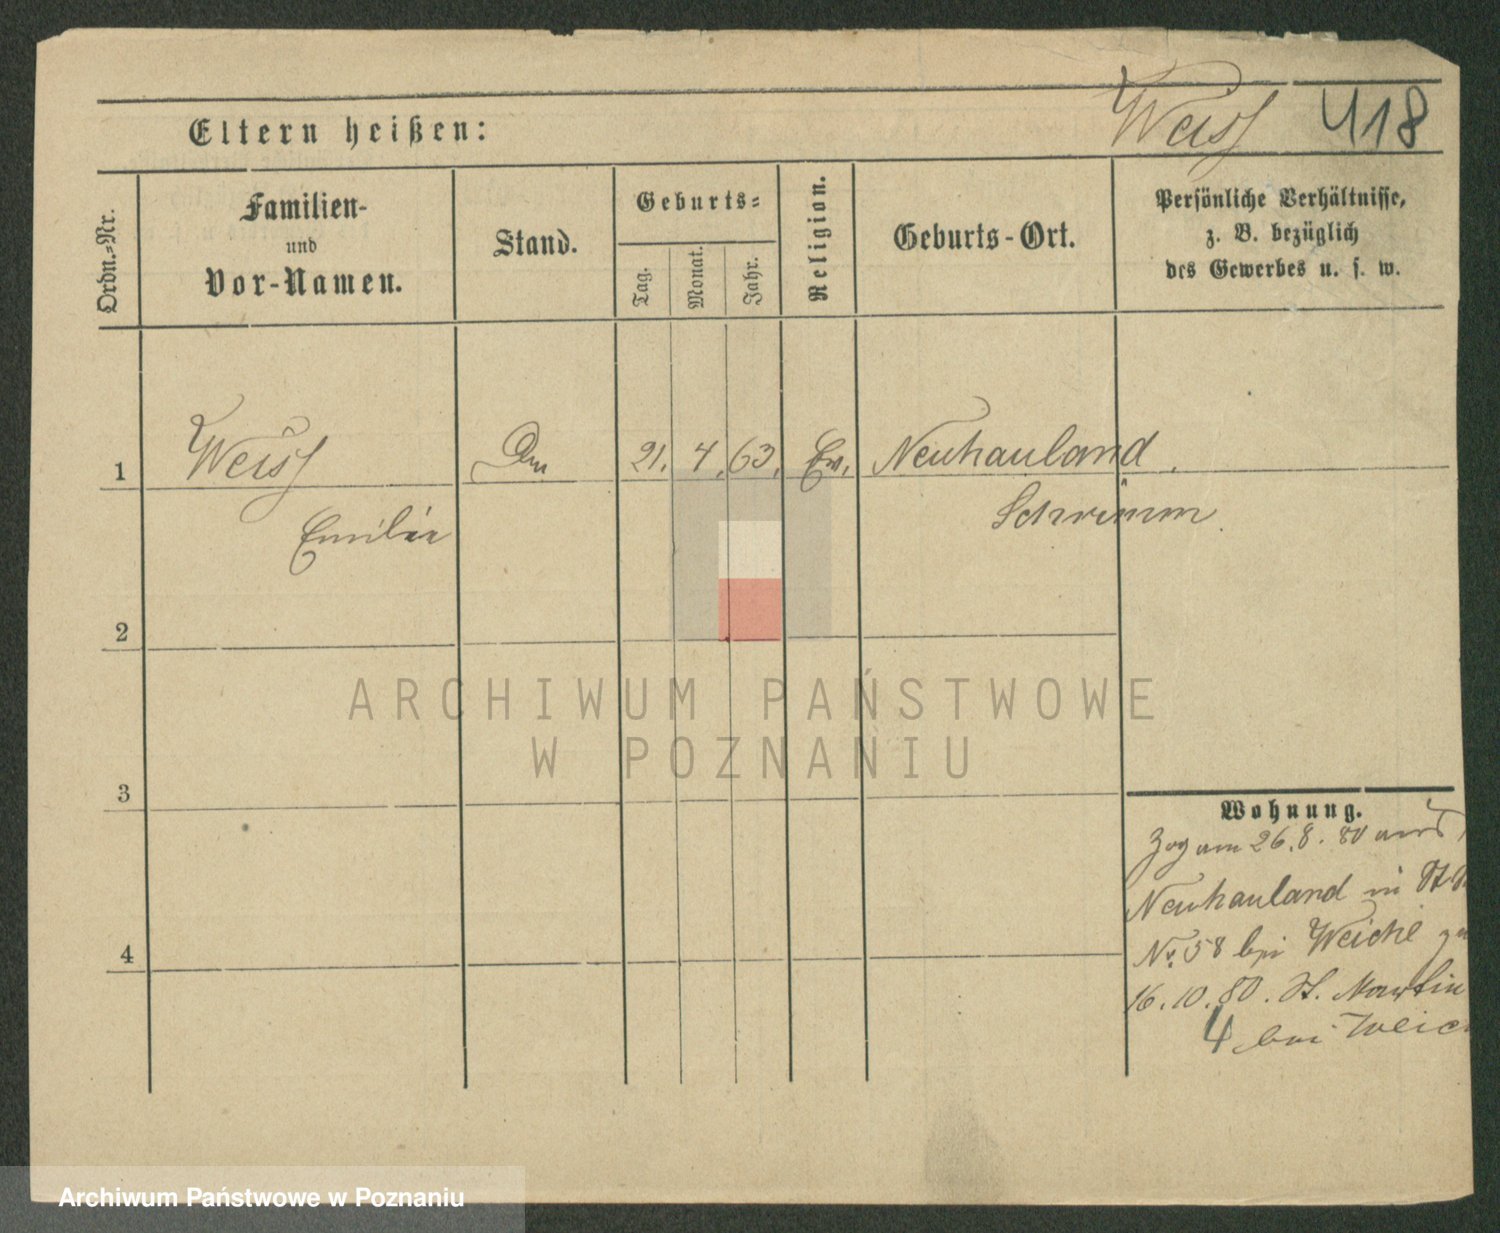 Weiß 418
Eltern heißen:
Ordn.-Nr.
Familien-
und
Vor-Namen.
Stand.
Geburts-
Tag.
Monat.
Jahr.
Religion.
Geburts-Ort.
Persönliche Verhältnisse,
z. B. bezüglich
des Gewerbes u. s. w.
1 Weiß 21. 4. 63. Ev. Neuhauland.
Emilie Schrimm
2
3
4
Wohnung.
Zog am 26.8.80 aus
Neuhauland in St
Nr. 58 bei Weichl
16.10.80. St. Martin
4 bei Weic
ARCHIWUM PAŃSTWOWE
W POZNANIU
Archiwum Państwowe w Poznaniu